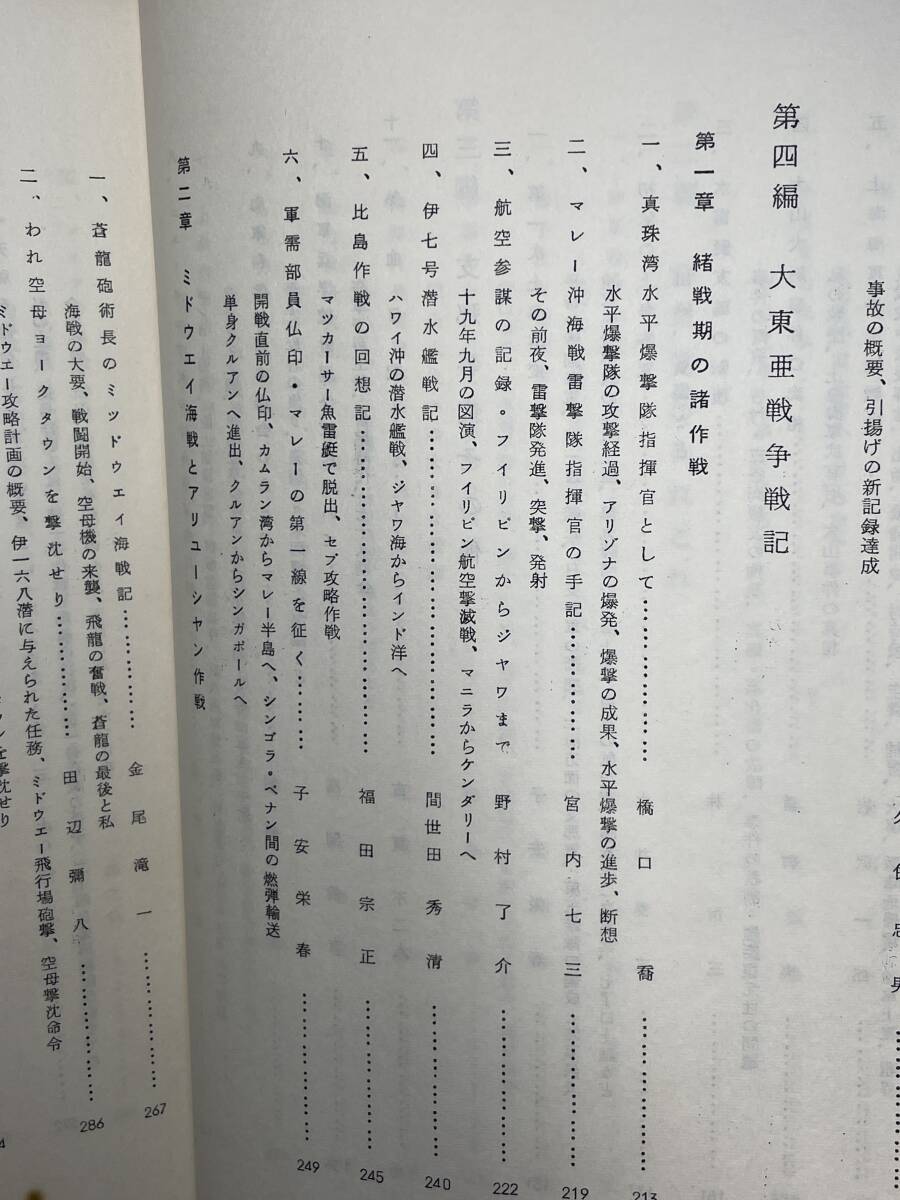 事故の概要、引揚げの新記録達成
第四編　大東亜戦争戦記
第一章　緒戦期の諸作戦
一、真珠湾水平爆撃隊指揮官として………………橋口　喬………………213
水平爆撃隊の攻撃経過、アリゾナの爆発、爆撃の成果、水平爆撃の進歩、断想
二、マレー沖海戦雷撃隊指揮官の手記……………宮内七三………………219
その前夜、雷撃隊発進、突撃、発射
三、航空参謀の記録・フイリピンからジヤワまで　野村了介………………222
十九年九月の図演、フイリピン航空撃滅戦、マニラからケンダリーへ
四、伊七号潜水艦戦記………………間世田秀清………………240
ハワイ沖の潜水艦戦、ジヤワ海からインド洋へ
五、比島作戦の回想記………………福田宗正………………245
マツカーサー魚雷艇で脱出、セブ攻略作戦
六、軍需部員仏印・マレーの第一線を征く………子安栄春………………249
開戦直前の仏印、カムラン湾からマレー半島へ、シンゴラ・ペナン間の燃弾輸送
単身クルアンへ進出、クルアンからシンガポールへ
第二章　ミドウエイ海戦とアリユーシヤン作戦
一、蒼龍砲術長のミツドウエイ海戦記……………金尾滝一………………267
海戦の大要、戦闘開始、空母機の来襲、飛龍の奮戦、蒼龍の最後と私
二、われ空母ヨークタウンを撃沈せり……………田辺彌八………………286
ミドウエー攻略計画の概要、伊一六八潜に与えられた任務、ミドウエー飛行場砲撃、空母撃沈命令
を撃沈せり